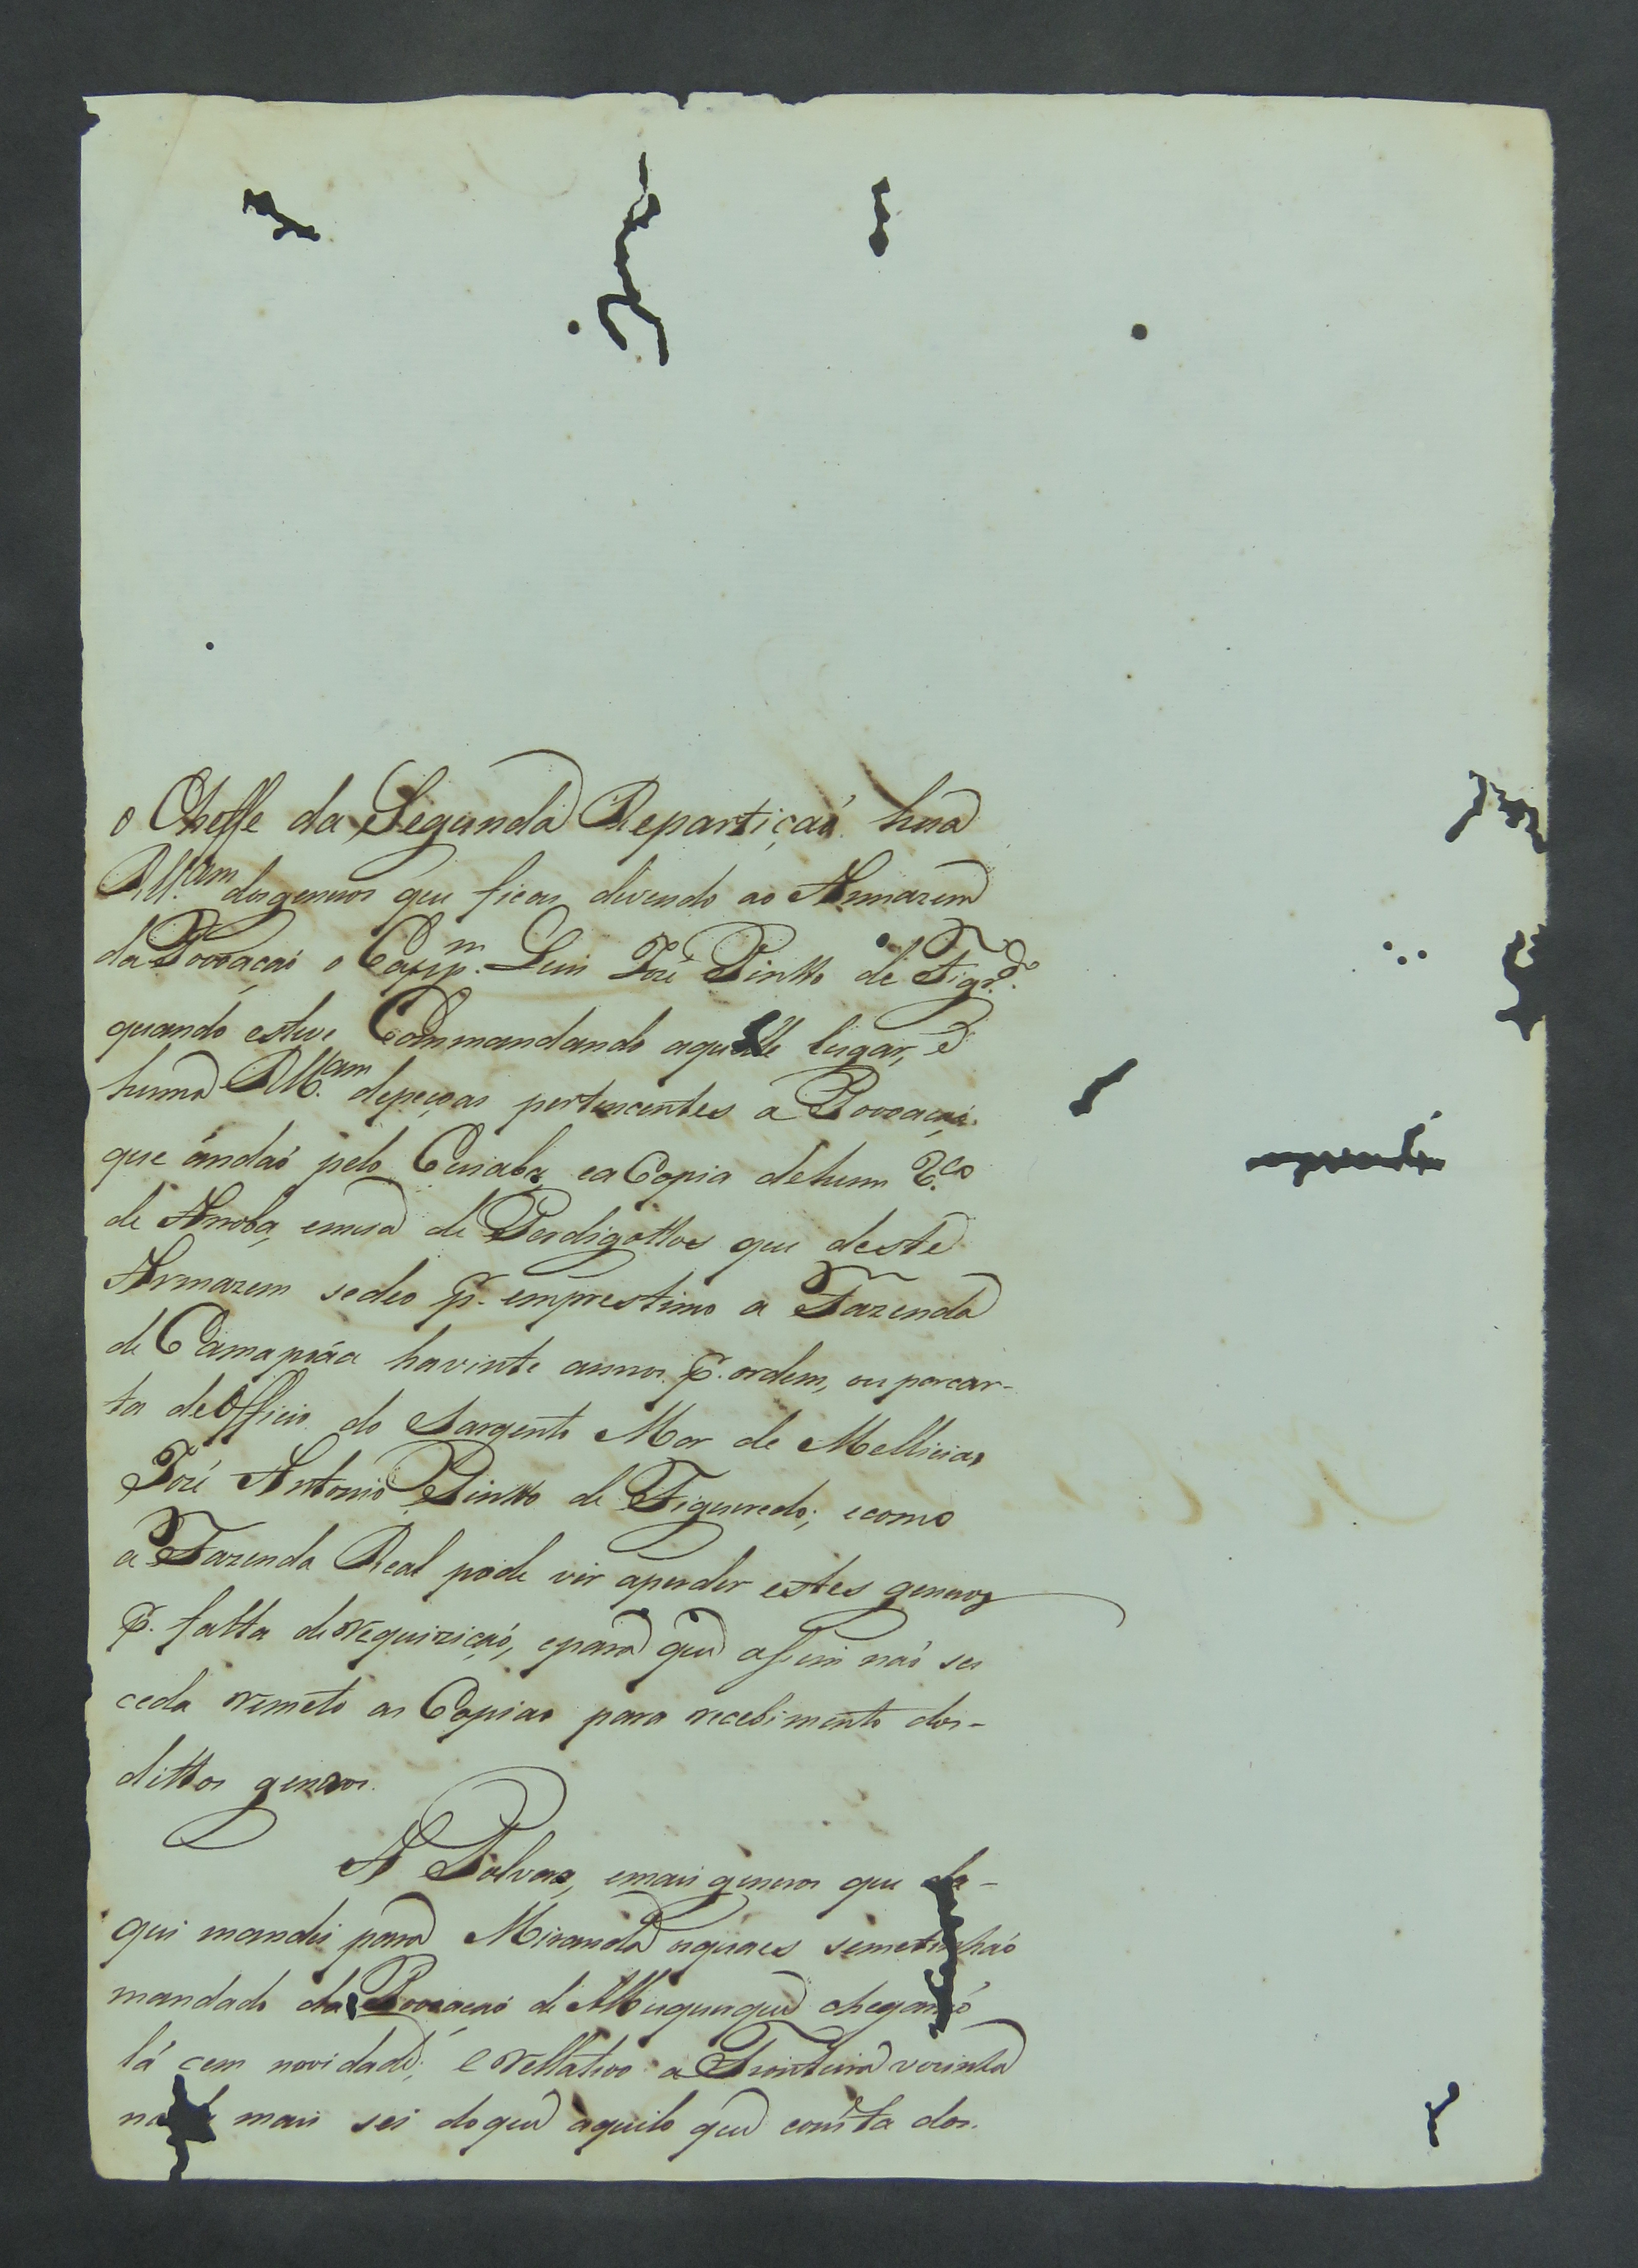 o Cheffe da Segunda Repartiçaó hũa
Rll.am dosgeneros que ficou devendo ao Armazem
da Povoaçaó o Cap.m Luis Jozé Pintto de Figr.do
quando esteve Commandando aquelle lugar, e
huma Rll.am depeças pertencentes a Povoaçaó
que ándaó pelo Cuiabá, ea Copia dehum
de Arroba, emeia de Perdigottos que deste
Armazem sedeo p. emprestimo a Fazenda
de Camapuáa havinte annos p. ordem, ou porcar-
ta deOfficio do Sargento Mor de Mellicias
Jozé Antonio Pintto de Figueredo; ecomo
a Fazenda Real pode vir aperder estes generos
p. falta derequiziçaó, epara que assim naó su
ceda remeto as Copias para recebimento dos-
dittos generos.
A Polvora, emais generos que da-
qui mandei para Miranda oquaes semetinhaó
mandado da Povoacaó de Albuquerque chegaraó
lá cem novidade; e rellativo a Fronteira vezinha
nada mais sei doque aquilo que consta dos.